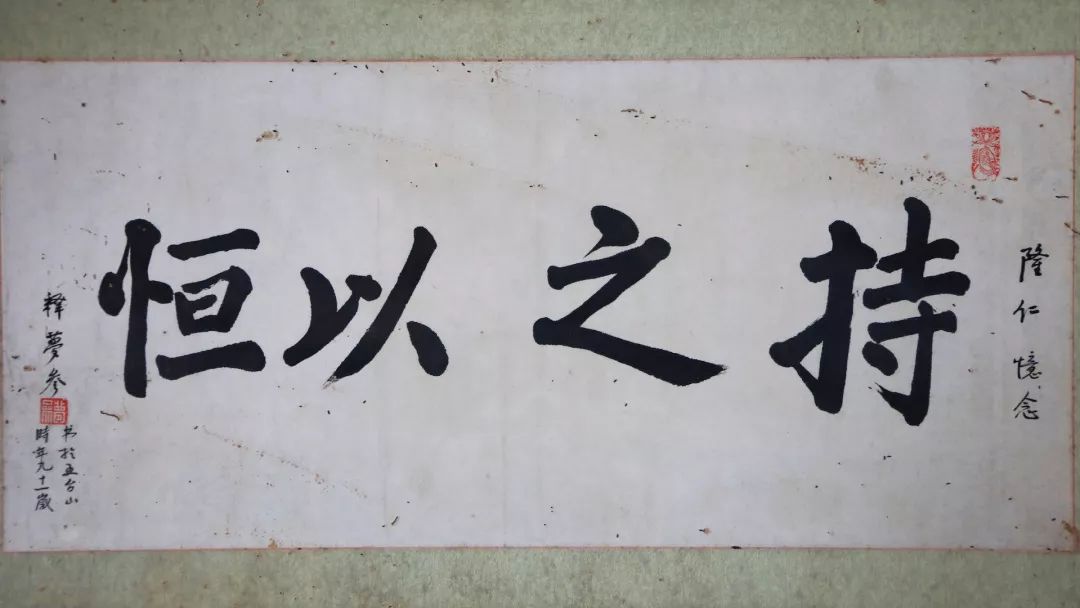 隆仁憶念
持之以恒
釋夢參
书於五台山
時年九十一歲